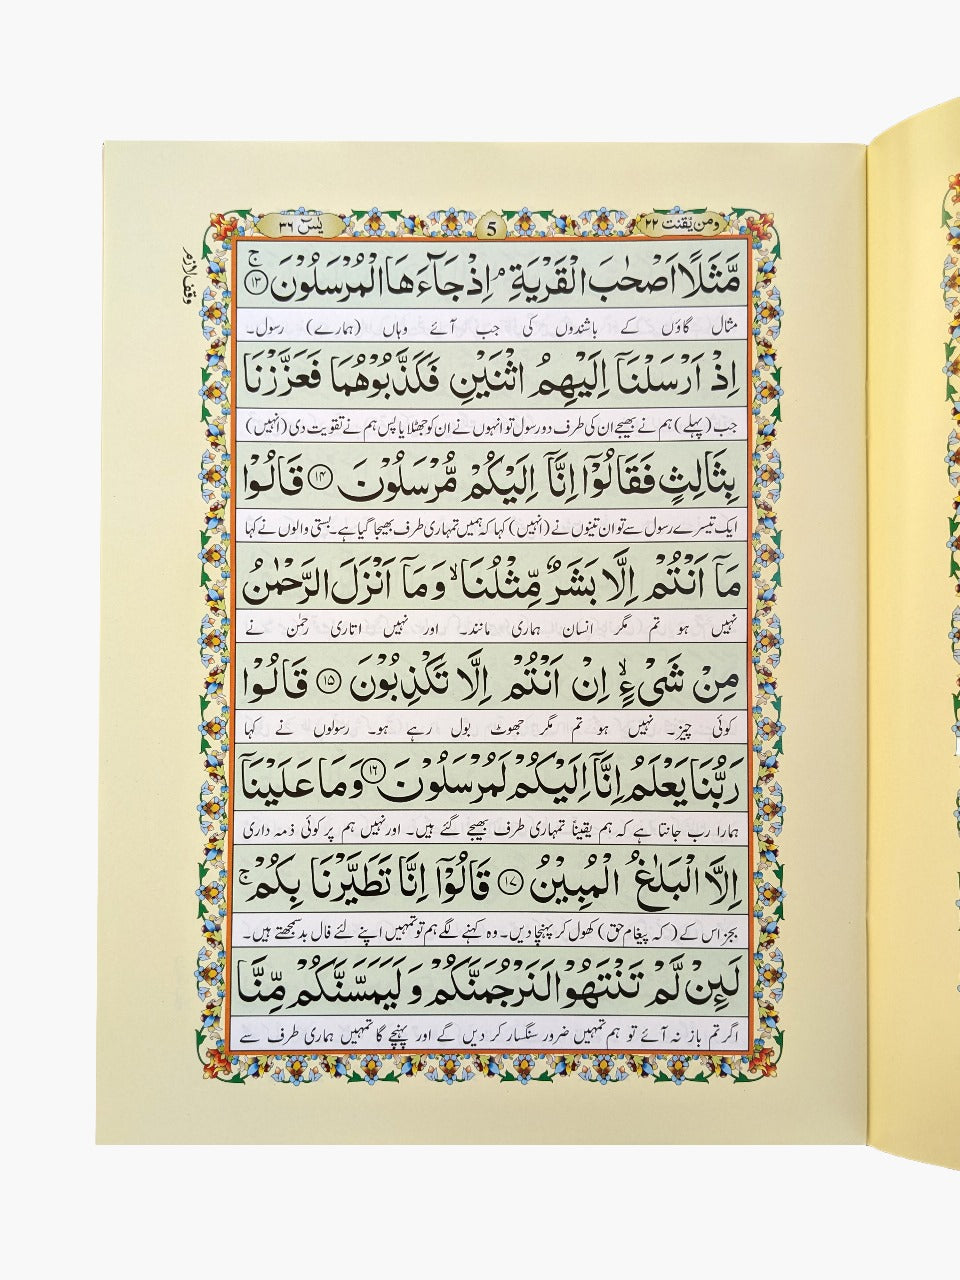 ومن یقنت ۲۲
5
یٰسٓ ۳۶
وقف لازم
مَّثَلًا اَصْحٰبَ الْقَرْیَةِ ۘ اِذْ جَآءَهَا الْمُرْسَلُوْنَ ۚ ﴿۱۳﴾
مثال گاؤں کے باشندوں کی جب آئے وہاں (ہمارے) رسول۔
اِذْ اَرْسَلْنَآ اِلَیْهِمُ اثْنَیْنِ فَكَذَّبُوْهُمَا فَعَزَّزْنَا
جب (پہلے) ہم نے بھیجے ان کی طرف دو رسول تو انہوں نے ان کو جھٹلایا پس ہم نے تقویت دی (انہیں)
بِثَالِثٍ فَقَالُوْٓا اِنَّآ اِلَیْكُمْ مُّرْسَلُوْنَ ﴿۱۴﴾ قَالُوْا
ایک تیسرے رسول سے تو ان تینوں نے (انہیں) کہا کہ ہمیں تمہاری طرف بھیجا گیا ہے۔ بستی والوں نے کہا
مَآ اَنْتُمْ اِلَّا بَشَرٌ مِّثْلُنَا ۙ وَمَآ اَنْزَلَ الرَّحْمٰنُ
نہیں ہو تم مگر انسان ہماری مانند۔ اور نہیں اتاری رحمٰن نے
مِنْ شَیْءٍ ۙ اِنْ اَنْتُمْ اِلَّا تَكْذِبُوْنَ ﴿۱۵﴾ قَالُوْا
کوئی چیز۔ نہیں ہو تم مگر جھوٹ بول رہے ہو۔ رسولوں نے کہا
رَبُّنَا یَعْلَمُ اِنَّآ اِلَیْكُمْ لَمُرْسَلُوْنَ ﴿۱۶﴾ وَمَا عَلَیْنَآ
ہمارا رب جانتا ہے کہ ہم یقیناً تمہاری طرف بھیجے گئے ہیں۔ اور نہیں ہم پر کوئی ذمہ داری
اِلَّا الْبَلٰغُ الْمُبِیْنُ ﴿۱۷﴾ قَالُوْٓا اِنَّا تَطَیَّرْنَا بِكُمْ ۚ
بجز اس کے (کہ پیغام حق) کھول کر پہنچا دیں۔ وہ کہنے لگے ہم تو تمہیں اپنے لئے فال بد سمجھتے ہیں۔
لَىِٕنْ لَّمْ تَنْتَهُوْا لَنَرْجُمَنَّكُمْ وَلَیَمَسَّنَّكُمْ مِّنَّا
اگر تم باز نہ آئے تو ہم تمہیں ضرور سنگسار کر دیں گے اور پہنچے گا تمہیں ہماری طرف سے